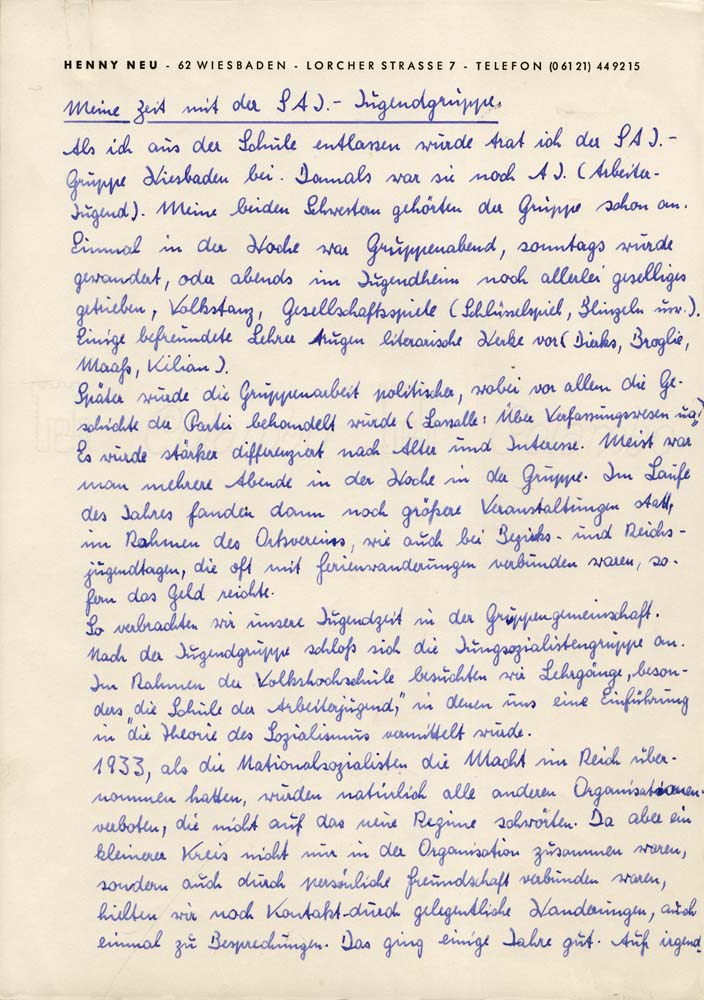 HENNY NEU - 62 WIESBADEN - LORCHER STRASSE 7 - TELEFON (06121) 449215
Meine Zeit mit der S A J. - Jugendgruppe.
Als ich aus der Schule entlassen wurde trat ich der S A J. -
Gruppe Wiesbaden bei. Damals war sie noch A J. (Arbeiter-
Jugend). Meine beiden Schwestern gehörten der Gruppe schon an.
Einmal in der Woche war Gruppenabend, sonntags wurde
gewandert, oder abends im Jugendheim noch allerlei geselliges
getrieben, Volkstanz, Gesellschaftsspiele (Schlüsselspiel, Blinzeln usw.).
Einige befreundete Lehrer trugen literarische Werke vor (Dierks, Broglie,
Maaß, Kilian).
Später wurde die Gruppenarbeit politischer, wobei vor allem die Ge-
schichte der Partei behandelt wurde (Lassalle: Über Verfassungswesen u.a.)
Es wurde stärker differenziert nach Alter und Interesse. Meist war
man mehrere Abende in der Woche in der Gruppe. Im Laufe
des Jahres fanden dann noch größere Veranstaltungen statt,
im Rahmen des Ortsvereins, wie auch bei Bezirks- und Reichs-
jugendtagen, die oft mit Ferienwanderungen verbunden waren, so-
fern das Geld reichte.
So verbrachten wir unsere Jugendzeit in der Gruppengemeinschaft.
Nach der Jugendgruppe schloß sich die Jungsozialistengruppe an.
Im Rahmen der Volkshochschule besuchten wir Lehrgänge, beson-
ders "die Schule der Arbeiterjugend," in denen uns eine Einführung
in "die Theorie des Sozialismus vermittelt wurde.
1933, als die Nationalsozialisten die Macht im Reich über-
nommen hatten, wurden natürlich alle anderen Organisationen
verboten, die nicht auf das neue Regime schwörten. Da aber ein
kleinerer Kreis nicht nur in der Organisation zusammen waren,
sondern auch durch persönliche Freundschaft verbunden waren,
hielten wir noch Kontakt durch gelegentliche Wanderungen, auch
einmal zu Besprechungen. Das ging einige Jahre gut. Auf irgend